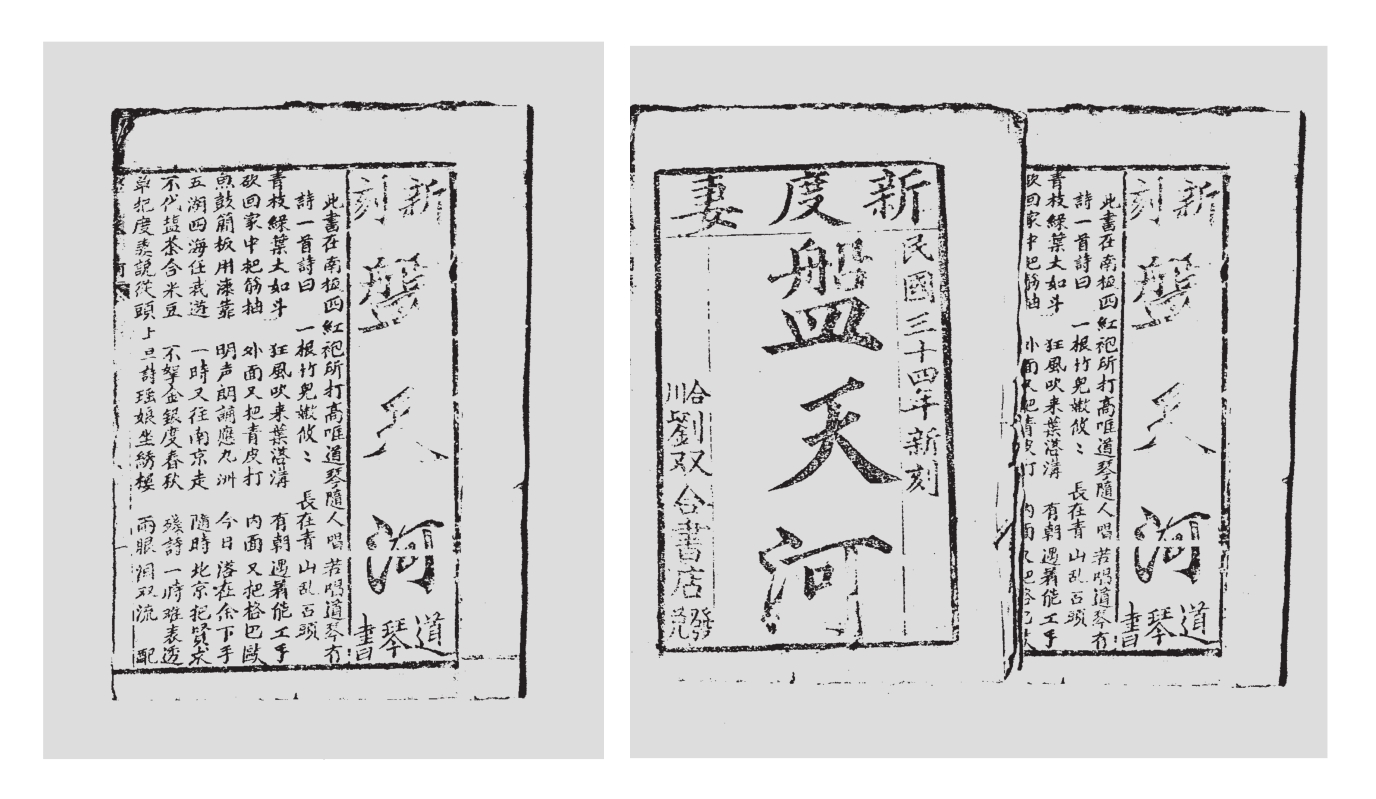 新刻
盤天河
道琴書
此書在南極四紅袍所打高唯道琴隨人唱 若唱道琴有
詩一首詩曰 一根竹兒嫩攸〻 長在青山乱石頭
青枝綠葉大如斗 狂風吹来葉落溝 有朝遇着能工手
砍回家中把筋抽 外面又把青皮打 內面又把格巴毆
魚鼓簡板用漆靠 明声朗誦應九洲 今日落在余下手
五湖四海任我遊 一時又往南京走 隨時北京把賢求
不代塩茶合米豆 不拏金銀度春秋 詩一時难表透
单把度妻說從頭 上旦詩瑶娘坐綉樓 兩眼泪双流 配
新度妻
民國三十四年新刻
盤天河
合川劉双合書店發兌
新刻
盤天河
道琴書
此書在南極四紅袍所打高唯道琴隨人唱 若唱道琴有
詩一首詩曰 一根竹兒嫩攸〻 長在青山乱石頭
青枝綠葉大如斗 狂風吹来葉落溝 有朝遇着能工手
砍回家中把筋抽 外面又把青皮打 內面又把格巴毆